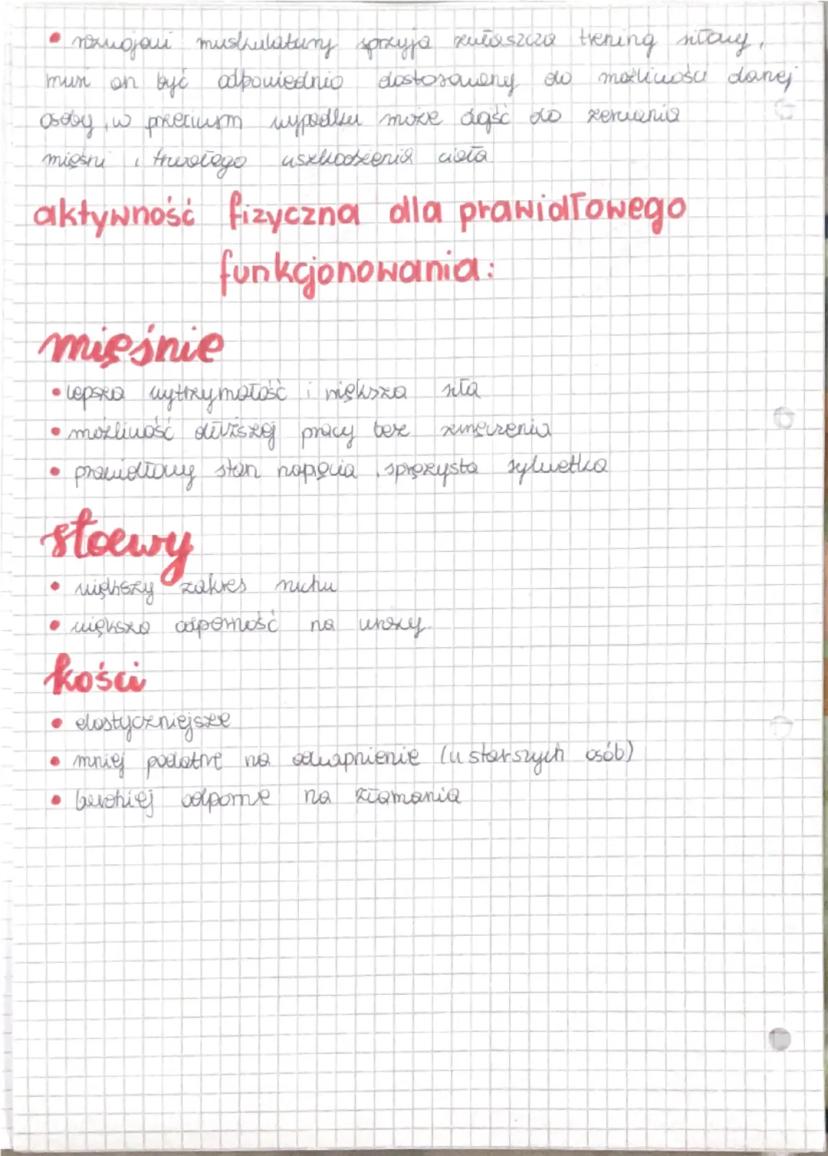 • rozwojowi muskulatury sprzyja zwłaszcza trening siłowy,
musi on być odpowiednio dostosowany do możliwości danej
osoby, w przeciwnym wypadku może dojść do zerwania
mięśni i trwałego uszkodzenia ciała
aktywność fizyczna dla prawidłowego
funkcjonowania:
mięśnie
• lepsza wytrzymałość i większa siła
• możliwość dłuższej pracy bez zmęczenia
• prawidłowy stan napięcia, sprężysta sylwetka
stawy
• większy zakres ruchu
• większa odporność na urazy
kości
• elastyczniejsze
• mniej podatne na odwapnienie (u starszych osób)
• bardziej odporne na złamania